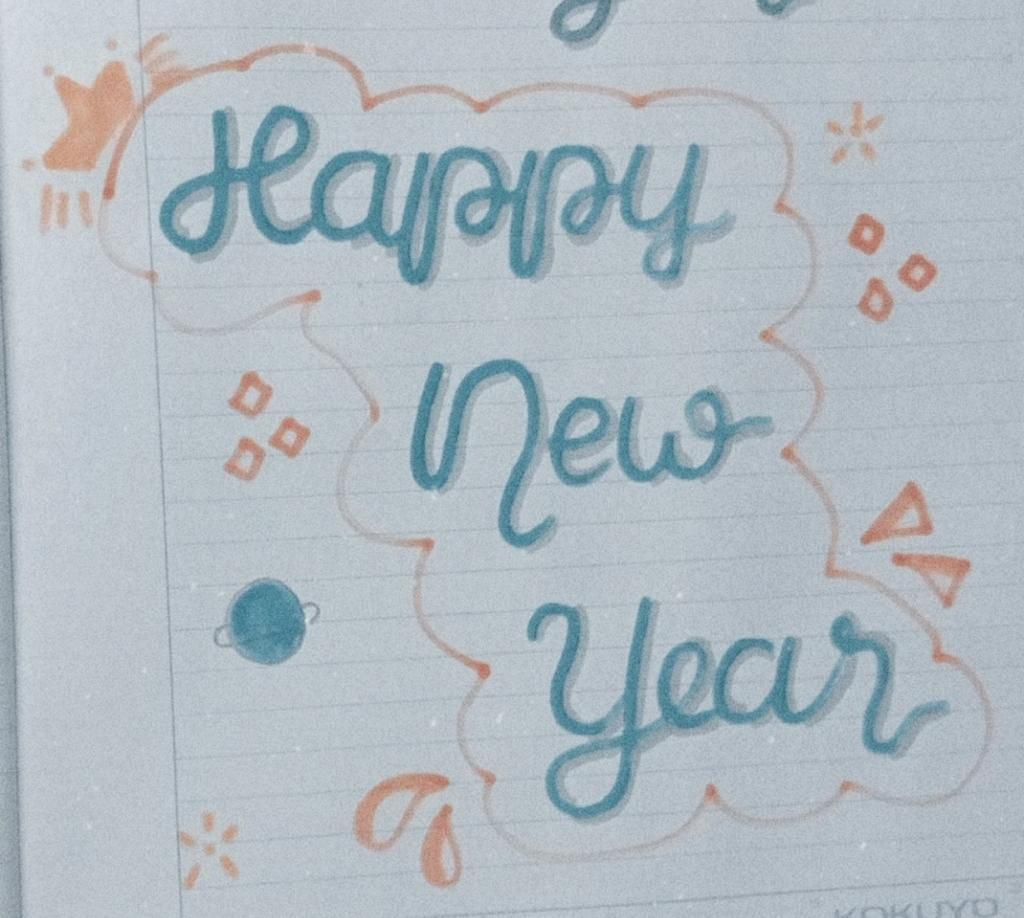 Happy
New
Year
KOKUYO